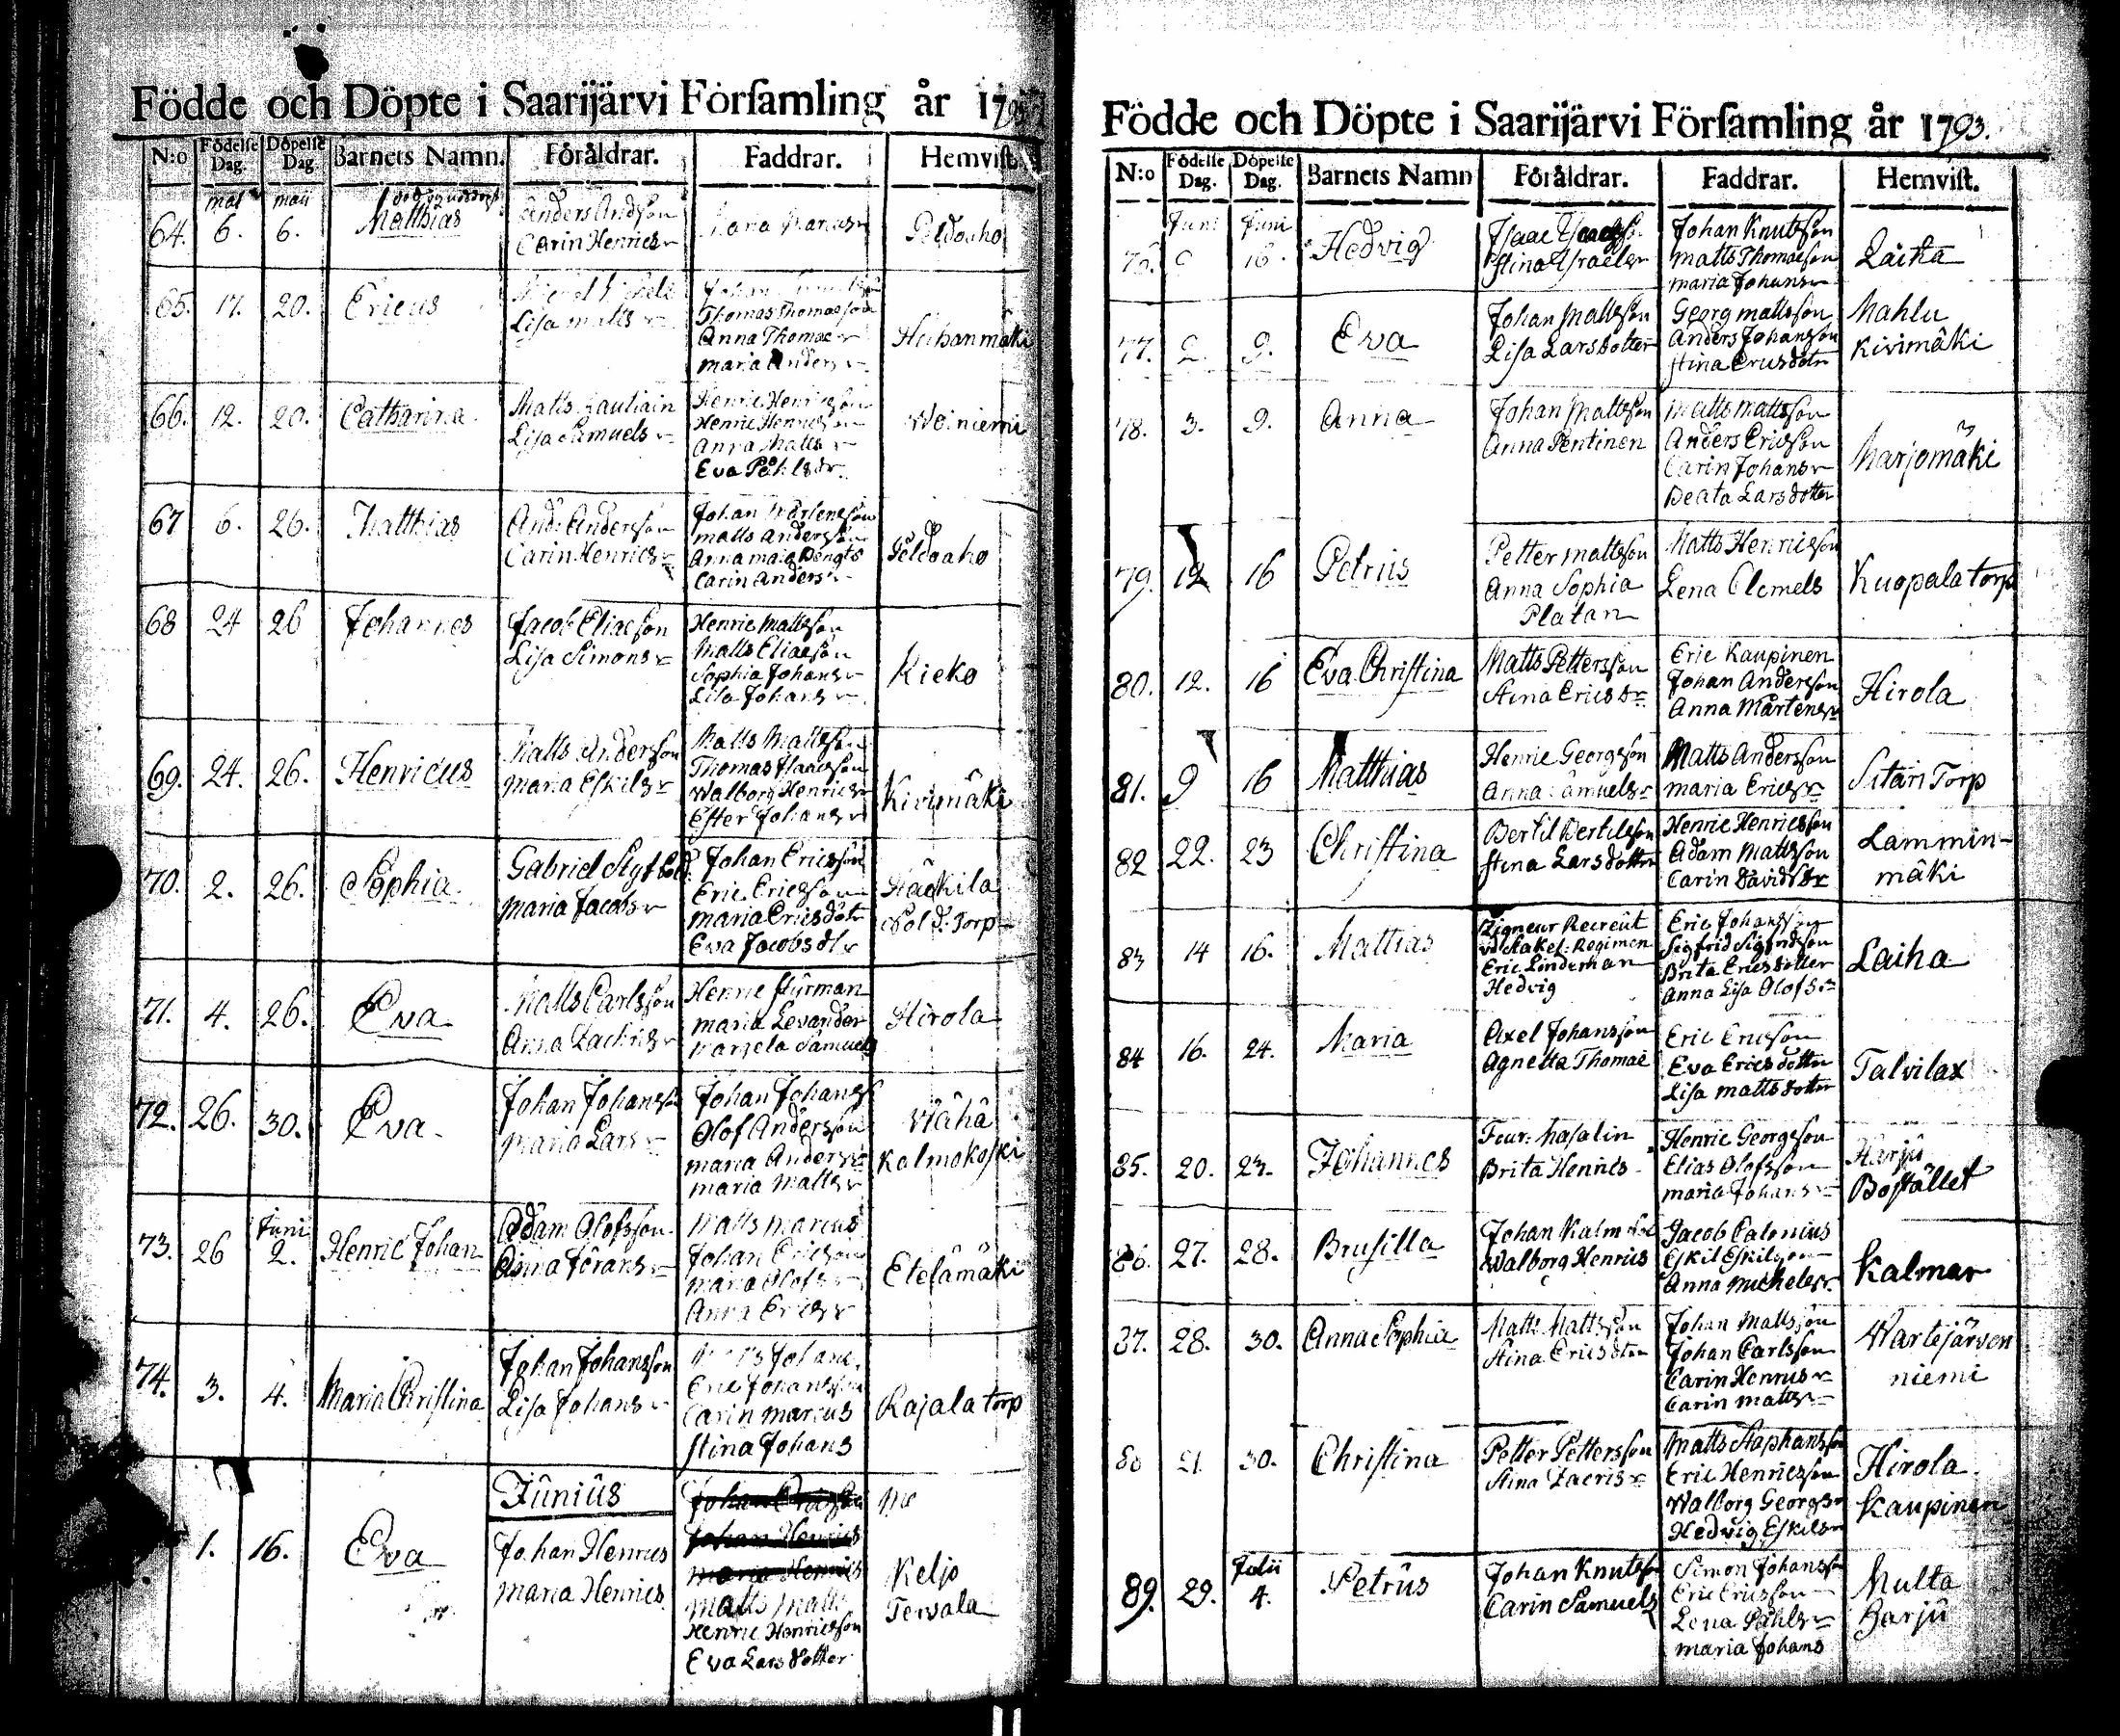 Födde och Döpte i Saarijärvi Församling år 179
N:o Födelse Dag. Döpelse Dag. Barnets Namn. Föräldrar. Faddrar. Hemvist.
maj maii
64. 6. 6. Matthias Anders Andsson Peldoaho
Carin Henricsr
65. 17. 20. Ericus Johan
Lisa Matts r Thomas Thomasson Huhanmäki
Anna Thomaer
Maria Anders r
66. 12. 20. Catharina Matts Hautiain Henric Henricsson Woiniemi
Lisa Samuels r Henric Henricsson
Anna Matts r
Eva Påhls dr
67 6. 26. Matthias And: Andersson Johan Mårtensson Peldoaho
Carin Henricsr Matts Andersson
Anna maja Bengts
Carin Anders r
68 24 26 Johannes Jacob Eliaeson Henric Mattsson Kieko
Lisa Simons r Matts Eliaeson
Sophia Johans r
Lisa Johans r
69. 24. 26. Henricus Matts Andersson Matts Mattsson Kivimäki
Maria Eskils r Thomas Isaacsson
Walborg Henricsr
Ester Johans r
70. 2. 26. Sophia Gabriel Johan Ericsson
Maria Jacobs r Eric Ericsson Sold: Torp
Maria Ericsdotr
Eva Jacobs dr
71. 4. 26. Eva Matts Carlsson Henric Styrman Hirola
Anna Zachris r Maria Levander
Margeta Samuels
72. 26. 30. Eva Johan Johansson Johan Johanss Wähä
Maria Lars r Olof Andersson Kalmokoski
Maria Anders r
Maria Matts r
73. 26 Juni 2. Henric Johan Adam Olofsson Matts Marcus Etelämäki
Anna Jörans r Johan Ericson
Maria Olofs r
Anna Erics r
74. 3. 4. Maria Christina Johan Johansson Johans Rajala torp
Lisa Johans r Eric Johansson
Carin Marcus
Stina Johans
Junius
1. 16. Eva Johan Henrics Johan Henrics Keljo
Maria Henrics Maria Henrics Tervala
Matts Matts
Henric Henricsson
Eva Larsdotter
Födde och Döpte i Saarijärvi Församling år 1793.
N:o Födelse Dag. Döpelse Dag. Barnets Namn Föräldrar. Faddrar. Hemvist.
Juni Juni
76. 16. Hedvig Isaac Johan Knutsson Laiha
Stina Israelsr Matts Thomaeson
Maria Johansr
77. 2. 9. Eva Johan Mattsson Georg Mattsson Mahlu
Lisa Larsdotter Anders Johansson Kivimäki
Stina Ericsdotr
78. 3. 9. Anna Johan Mattsson Matts Mattsson Marjomäki
Anna Pentinen Anders Ericsson
Carin Johans r
Beata Larsdotter
79. 12 16 Petrus Petter Mattsson Matts Henricsson Kuopala torp
Anna Sophia Lena Clemets
Platan
80. 12. 16 Eva Christina Matts Pettersson Eric Kaupinen Hirola
Stina Ericsdr Johan Andersson
Anna Mårtensr
81. 9 16 Matthias Henric Georgson Matts Andersson Sitari Torp
Anna Samuels r Maria Ericsr
82 22. 23 Christina Bertil Bertilsson Henric Henricsson Lammin-
Stina Larsdotter Adam Mattsson mäki
Carin Davidsdr
83 14 16. Mattias Recreut Eric Johansson Laiha
Regimen Sigfrid Sigfridsson
Eric Lindeman Brita Ericsdotter
Hedvig Anna Lisa Olofs r
84 16. 24. Maria Axel Johansson Eric Ericson Talvilax
Agnetta Thomae Eva Ericsdotter
Lisa Mattsdotter
85. 20. 23. Johannes Four: Masalin Henric Georgeson Harju
Brita Henrics Elias Olofsson Bostället
Maria Johans r
86. 27. 28. Brusilla Johan Jacob Calonius Kalmar
Walborg Henrics Eskil Eskilsson
Anna Michelsr
87. 28. 30. Anna Sophia Matts Mattsson Johan Mattsson Wartejärven
Stina Ericsdotter Johan Carlsson niemi
Carin Henrics r
Carin Matts r
88 21. 30. Christina Petter Pettersson Matts Staphansson Hirola
Stina Zacris r Eric Henricsson Kaupinen
Walborg Georgsr
Hedvig Eskilsr
89. 29. Julii 4. Petrus Johan Knutsson Simon Johansson Multa
Carin Samuels Eric Ericsson Harju
Lena Påhls r
Maria Johans